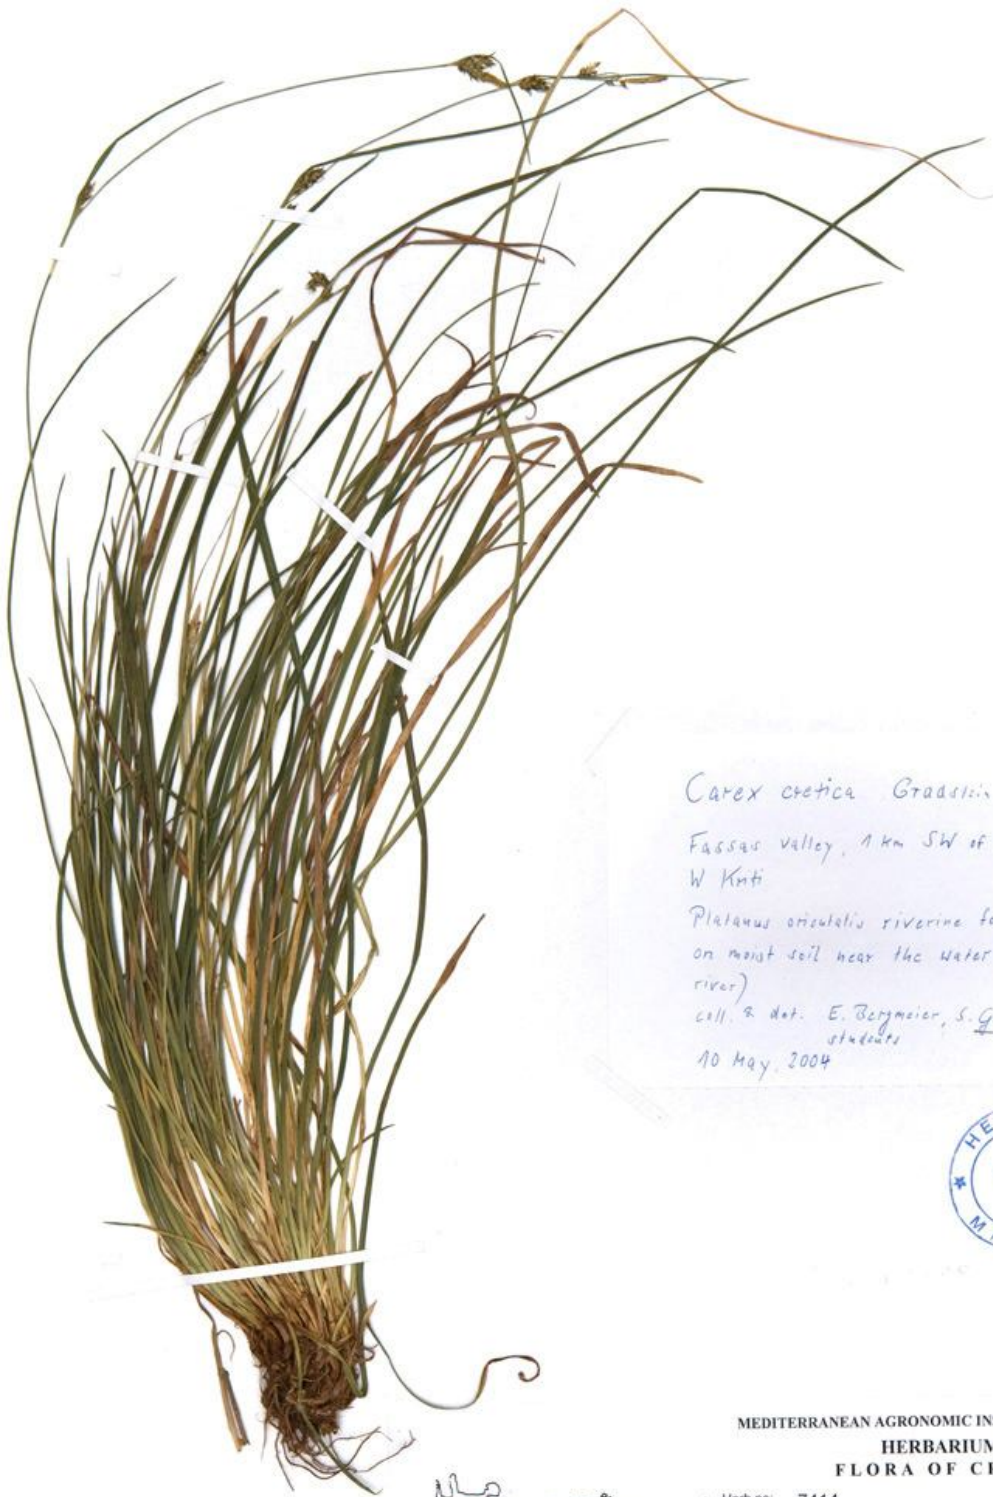 Carex cretica Gradstein
Fassas valley, 1 km SW of
W Kriti
Platanus orientalis riverine fo
on moist soil near the water
river)
coll. & det. E. Bergmeier, S. G
students
10 May, 2004
HE
M
MEDITERRANEAN AGRONOMIC IN
HERBARIUM
FLORA OF C
7444